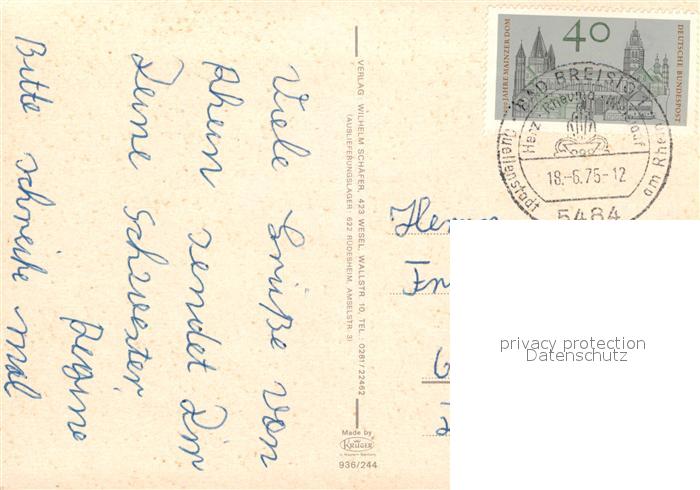 Viele Grüße von
Rhein sendet Dir
Deine Schwester
Regine
Bitte schreibe mal
VERLAG WILHELM SCHÄFER, 423 WESEL, WALLSTR. 10, TEL.: 0281/22462
(AUSLIEFERUNGSLAGER: 622 RÜDESHEIM, AMSELSTR. 3)
Made by
KRÜGER
936/244
40
DEUTSCHE BUNDESPOST
JAHRE MAINZER DOM
BAD BREISIG
Quellenstadt am Rhein
18.-6.75-12
5484
Herrn
privacy protection
Datenschutz